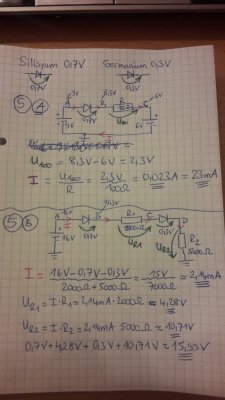 Silisyum 0,7V Germanium 0,3V
0,7V 0,3V
5 A
9V 8,3V 6V
A B R C
0,7V 100Ω
9V U100 6V
U100 = 8,3V - 6V = 2,3V
I = U100/R = 2,3V/100Ω = 0,023A = 23mA
5 B
A 16V B R1 C D
0,7V 2000Ω 0,3V
16V I UR1 UR2 R2
5000Ω
I = 16V-0,7V-0,3V/2000Ω+5000Ω = 15V/7000Ω ≈ 2,14mA
UR1 = I·R1 = 2,14mA·2000Ω ≈ 4,28V
UR2 = I·R2 = 2,14mA·5000Ω ≈ 10,71V
0,7V + 4,28V + 0,3V + 10,71V ≈ 15,99V